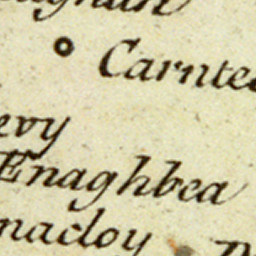 Carntee
evy
Enaghbea
nacloy